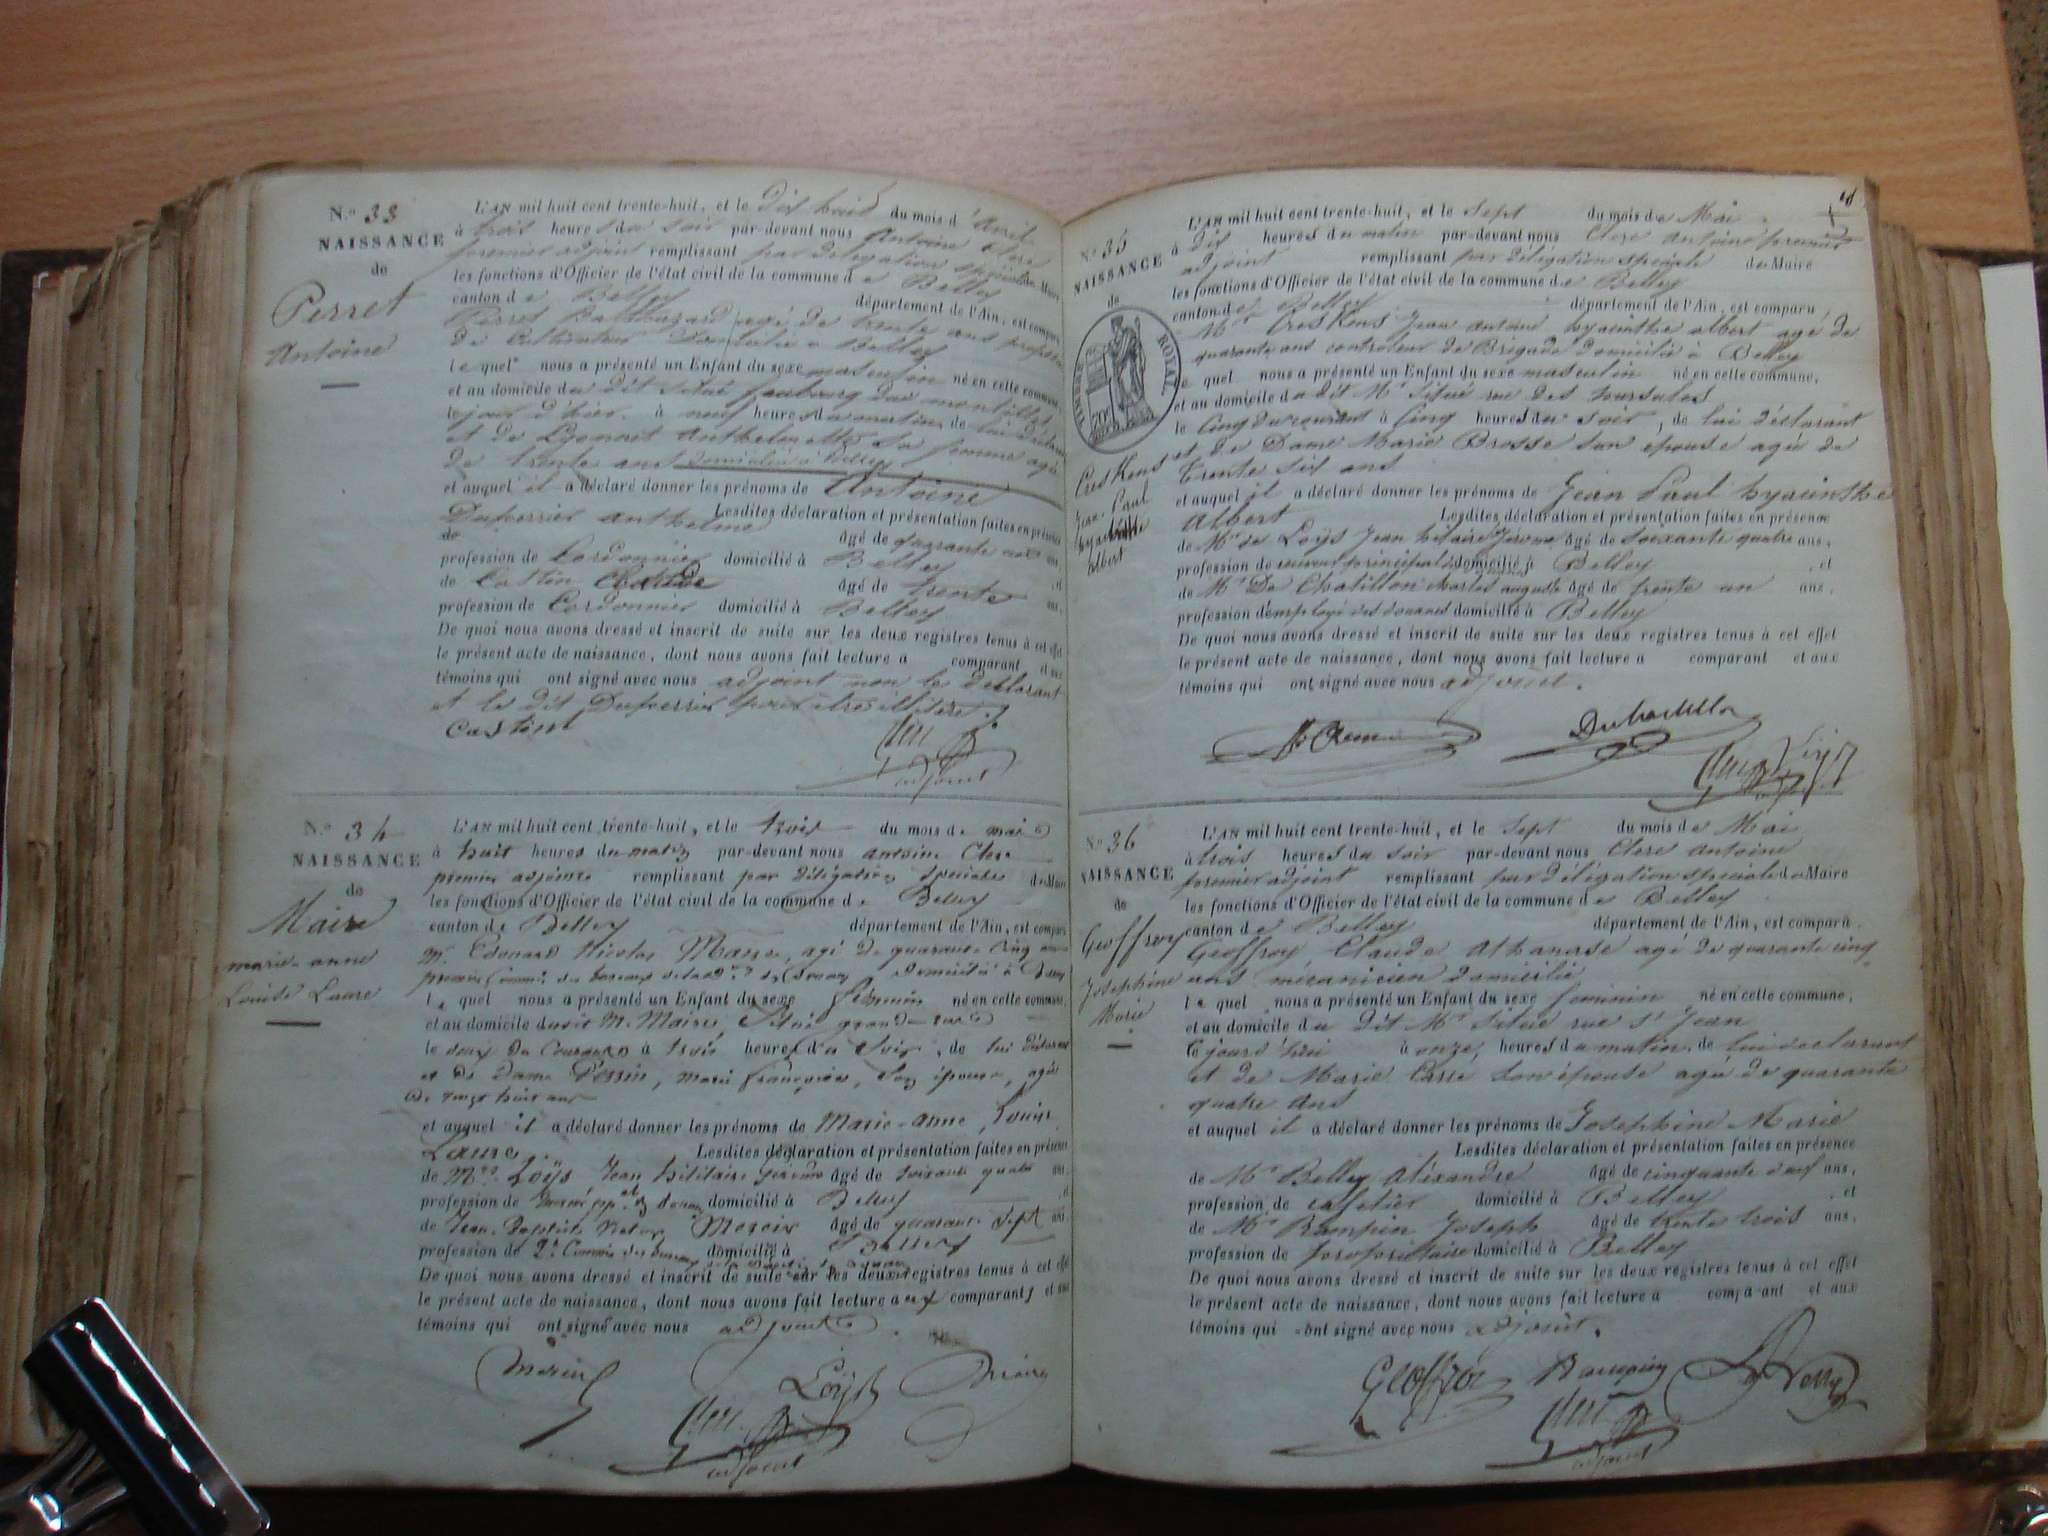 N.o 33
NAISSANCE
de
Perret
Antoine
L'AN mil huit cent trente-huit, et le dix huit du mois d'Avril
à trois heures du soir par-devant nous Antoine Clerc
premier adjoint remplissant par délégation spéciale du Maire
les fonctions d'Officier de l'état civil de la commune de Belley
canton de Belley département de l'Ain, est comparu
Perret Balthazard agé de trente ans profession
de Cultivateur Domicilié a Belley
lequel nous a présenté un Enfant du sexe masculin né en cette commune,
et au domicile du dit situé faubourg du
le jour d'hier à neuf heures du matin de lui déclarant
et de Lyonnet Anthelmette sa femme agée
de trente ans domiciliée à Belley
et auquel il a déclaré donner les prénoms de Antoine
Lesdites déclaration et présentation faites en présence
de Duferrier Anthelme âgé de quarante ans,
profession de Cordonnier domicilié à Belley et
de Castin Claude âgé de trente ans,
profession de Cordonnier domicilié à Belley
De quoi nous avons dressé et inscrit de suite sur les deux registres tenus à cet effet
le présent acte de naissance, dont nous avons fait lecture a comparant et aux
témoins qui ont signé avec nous adjoint non le déclarant
et le dit Duferrier pour être illitéré
Castin
Clerc
adjoint
N.o 34
NAISSANCE
de
Maire
marie-anne
Louise Laure
L'AN mil huit cent trente-huit, et le trois du mois de mai
à huit heures du matin par-devant nous antoine Clerc
premier adjoint remplissant par délégation spéciale du Maire
les fonctions d'Officier de l'état civil de la commune de Belley
canton de Belley département de l'Ain, est comparu
M. Edouard Nicolas Maire, agé de quarante cinq ans
premier Commis des bureaux de la des Douanes domicilié à
lequel nous a présenté un Enfant du sexe féminin né en cette commune,
et au domicile dudit M. Maire, situé grand-rue
le deux du Courant à trois heures du soir, de lui déclarant
et de Dame Perrin, Marie françoise, son épouse, agée
de vingt huit ans
et auquel il a déclaré donner les prénoms de Marie-anne, Louise
Laure Lesdites déclaration et présentation faites en présence
de Mr. Loÿs Jean hilaire Jérome âgé de soixante quatre ans,
profession de domicilié à Belley et
de Jean-Baptiste Mercier âgé de quarante sept ans,
profession de 2e Commis des domicilié à Belley
De quoi nous avons dressé et inscrit de suite sur les deux registres tenus à cet effet
le présent acte de naissance, dont nous avons fait lecture aux comparants et aux
témoins qui ont signé avec nous adjoint
Mercier
Loÿs
Maire
Clerc
adjoint
N.o 35
NAISSANCE
de
TIMBRE ROYAL
70c
CresKens
Jean-Paul
hyacinthe
albert
L'AN mil huit cent trente-huit, et le sept du mois de Mai
à dix heures du matin par-devant nous Clerc Antoine premier
adjoint remplissant par délégation spéciale du Maire
les fonctions d'Officier de l'état civil de la commune de Belley
canton de Belley département de l'Ain, est comparu,
Mr CresKens Jean Antoine hyacinthe albert agé de
quarante ans controleur de Brigade domicilié à Belley
lequel nous a présenté un Enfant du sexe masculin né en cette commune,
et au domicile du dit Mr situé rue des
le cinq du courant à cinq heures du soir, de lui déclarant
et de Dame Marie Brosse son épouse agée de
Trente six ans
et auquel il a déclaré donner les prénoms de Jean Paul hyacinthe
Albert Lesdites déclaration et présentation faites en présence
de Mr de Loÿs Jean hilaire Jerome âgé de soixante quatre ans,
profession de receveur principal domicilié à Belley et
de Mr De Chatillon charles auguste âgé de trente un ans,
profession d'employé des douanes domicilié à Belley
De quoi nous avons dressé et inscrit de suite sur les deux registres tenus à cet effet
le présent acte de naissance, dont nous avons fait lecture a comparant et aux
témoins qui ont signé avec nous adjoint.
Duchatillon
Clerc
Loÿs
N.o 36
NAISSANCE
de
Geoffroy
Josephine
Marie
L'AN mil huit cent trente-huit, et le sept du mois de Mai
à trois heures du soir par-devant nous Clerc Antoine
premier adjoint remplissant par délégation spéciale du Maire
les fonctions d'Officier de l'état civil de la commune de Belley
canton de Belley département de l'Ain, est comparu
Geoffroy Claude Athanase agé de quarante cinq
ans mécanicien domicilié
lequel nous a présenté un Enfant du sexe féminin né en cette commune,
et au domicile du dit Mr situé rue St Jean
le jourd'hui à onze heures du matin, de lui declarant
et de Marie son épouse agée de quarante
quatre ans
et auquel il a déclaré donner les prénoms de Josephine Marie
Lesdites déclaration et présentation faites en présence
de Mr Belley Alexandre âgé de cinquante neuf ans,
profession de cafetier domicilié à Belley et
de Mr Rampin Joseph âgé de trente trois ans,
profession de propriétaire domicilié à Belley
De quoi nous avons dressé et inscrit de suite sur les deux registres tenus à cet effet
le présent acte de naissance, dont nous avons fait lecture a comparant et aux
témoins qui ont signé avec nous adjoint.
Geoffroy
Rampin
Clerc
adjoint